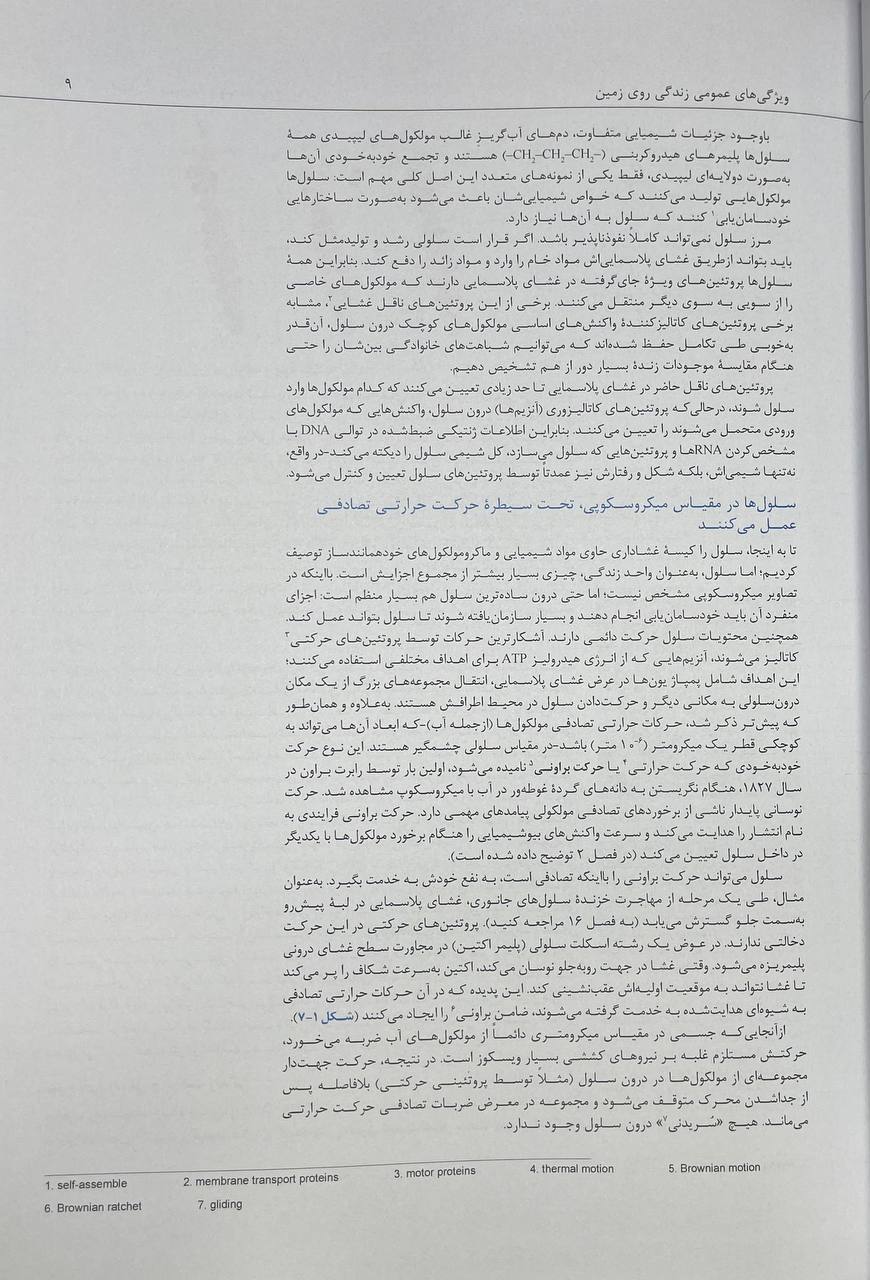 ویژگی‌های عمومی زندگی روی زمین ۹
باوجود جزئیات شیمیایی متفاوت، دم‌های آب‌گریز غالب مولکول‌های لیپیدی همهٔ
سلول‌ها پلیمرهای هیدروکربنی (–CH₂–CH₂–CH₂–) هستند و تجمع خودبه‌خودی آن‌ها
به‌صورت دولایه‌ای لیپیدی، فقط یکی از نمونه‌های متعدد این اصل کلی مهم است: سلول‌ها
مولکول‌هایی تولید می‌کنند که خواص شیمیایی‌شان باعث می‌شود به‌صورت ساختارهایی
خودسامان‌یابی¹ کنند که سلول به آن‌ها نیاز دارد.
مرز سلول نمی‌تواند کاملاً نفوذناپذیر باشد. اگر قرار است سلولی رشد و تولیدمثل کند،
باید بتواند ازطریق غشای پلاسمایی‌اش مواد خام را وارد و مواد زائد را دفع کند. بنابراین همهٔ
سلول‌ها پروتئین‌های ویژهٔ جای‌گرفته در غشای پلاسمایی دارند که مولکول‌های خاصی
را از سویی به سوی دیگر منتقل می‌کنند. برخی از این پروتئین‌های ناقل غشایی²، مشابه
برخی پروتئین‌های کاتالیزکنندهٔ واکنش‌های اساسی مولکول‌های کوچک درون سلول، آن‌قدر
به‌خوبی طی تکامل حفظ شده‌اند که می‌توانیم شباهت‌های خانوادگی بین‌شان را حتی
هنگام مقایسهٔ موجودات زندهٔ بسیار دور از هم تشخیص دهیم.
پروتئین‌های ناقل حاضر در غشای پلاسمایی تا حد زیادی تعیین می‌کنند که کدام مولکول‌ها وارد
سلول شوند، درحالی‌که پروتئین‌های کاتالیزوری (آنزیم‌ها) درون سلول، واکنش‌هایی که مولکول‌های
ورودی متحمل می‌شوند را تعیین می‌کنند. بنابراین اطلاعات ژنتیکی ضبط‌شده در توالی DNA با
مشخص‌کردن RNAها و پروتئین‌هایی که سلول می‌سازد، کل شیمی سلول را دیکته می‌کند-در واقع،
نه‌تنها شیمی‌اش، بلکه شکل و رفتارش نیز عمدتاً توسط پروتئین‌های سلول تعیین و کنترل می‌شود.
سلول‌ها در مقیاس میکروسکوپی، تحت سیطرهٔ حرکت حرارتی تصادفی
عمل می‌کنند
تا به اینجا، سلول را کیسهٔ غشاداری حاوی مواد شیمیایی و ماکرومولکول‌های خودهمانندساز توصیف
کردیم؛ اما سلول، به‌عنوان واحد زندگی، چیزی بسیار بیشتر از مجموع اجزایش است. بااینکه در
تصاویر میکروسکوپی مشخص نیست؛ اما حتی درون ساده‌ترین سلول هم بسیار منظم است: اجزای
منفرد آن باید خودسامان‌یابی انجام دهند و بسیار سازمان‌یافته شوند تا سلول بتواند عمل کند.
همچنین محتویات سلول حرکت دائمی دارند. آشکارترین حرکات توسط پروتئین‌های حرکتی³
کاتالیز می‌شوند، آنزیم‌هایی که از انرژی هیدرولیز ATP برای اهداف مختلفی استفاده می‌کنند؛
این اهداف شامل پمپاژ یون‌ها در عرض غشای پلاسمایی، انتقال مجموعه‌های بزرگ از یک مکان
درون‌سلولی به مکانی دیگر و حرکت‌دادن سلول در محیط اطرافش هستند. به‌علاوه و همان‌طور
که پیش‌تر ذکر شد، حرکات حرارتی تصادفی مولکول‌ها (ازجمله آب)-که ابعاد آن‌ها می‌تواند به
کوچکی قطر یک میکرومتر (۱۰⁻⁶ متر) باشد-در مقیاس سلولی چشمگیر هستند. این نوع حرکت
خودبه‌خودی که حرکت حرارتی⁴ یا حرکت براونی⁵ نامیده می‌شود، اولین بار توسط رابرت براون در
سال ۱۸۲۷، هنگام نگریستن به دانه‌های گردهٔ غوطه‌ور در آب با میکروسکوپ مشاهده شد. حرکت
نوسانی پایدار ناشی از برخوردهای تصادفی مولکولی پیامدهای مهمی دارد. حرکت براونی فرایندی به
نام انتشار را هدایت می‌کند و سرعت واکنش‌های بیوشیمیایی را هنگام برخورد مولکول‌ها با یکدیگر
در داخل سلول تعیین می‌کند (در فصل ۲ توضیح داده شده است).
سلول می‌تواند حرکت براونی را بااینکه تصادفی است، به نفع خودش به خدمت بگیرد. به‌عنوان
مثال، طی یک مرحله از مهاجرت خزندهٔ سلول‌های جانوری، غشای پلاسمایی در لبهٔ پیش‌رو
به‌سمت جلو گسترش می‌یابد (به فصل ۱۶ مراجعه کنید). پروتئین‌های حرکتی در این حرکت
دخالتی ندارند. در عوض یک رشته اسکلت سلولی (پلیمر اکتین) در مجاورت سطح غشای درونی
پلیمریزه می‌شود. وقتی غشا در جهت روبه‌جلو نوسان می‌کند، اکتین به‌سرعت شکاف را پر می‌کند
تا غشا نتواند به موقعیت اولیه‌اش عقب‌نشینی کند. این پدیده که در آن حرکات حرارتی تصادفی
به شیوه‌ای هدایت‌شده به خدمت گرفته می‌شوند، ضامن براونی⁶ را ایجاد می‌کنند (شکل ۱-۷).
ازآنجایی‌که جسمی در مقیاس میکرومتری دائماً از مولکول‌های آب ضربه می‌خورد،
حرکتش مستلزم غلبه بر نیروهای کششی بسیار ویسکوز است. در نتیجه، حرکت جهت‌دار
مجموعه‌ای از مولکول‌ها در درون سلول (مثلاً توسط پروتئینی حرکتی) بلافاصله پس
از جداشدن محرک متوقف می‌شود و مجموعه در معرض ضربات تصادفی حرکت حرارتی
می‌ماند. هیچ «سُریدنی⁷» درون سلول وجود ندارد.
1. self-assemble 2. membrane transport proteins 3. motor proteins 4. thermal motion 5. Brownian motion
6. Brownian ratchet 7. gliding